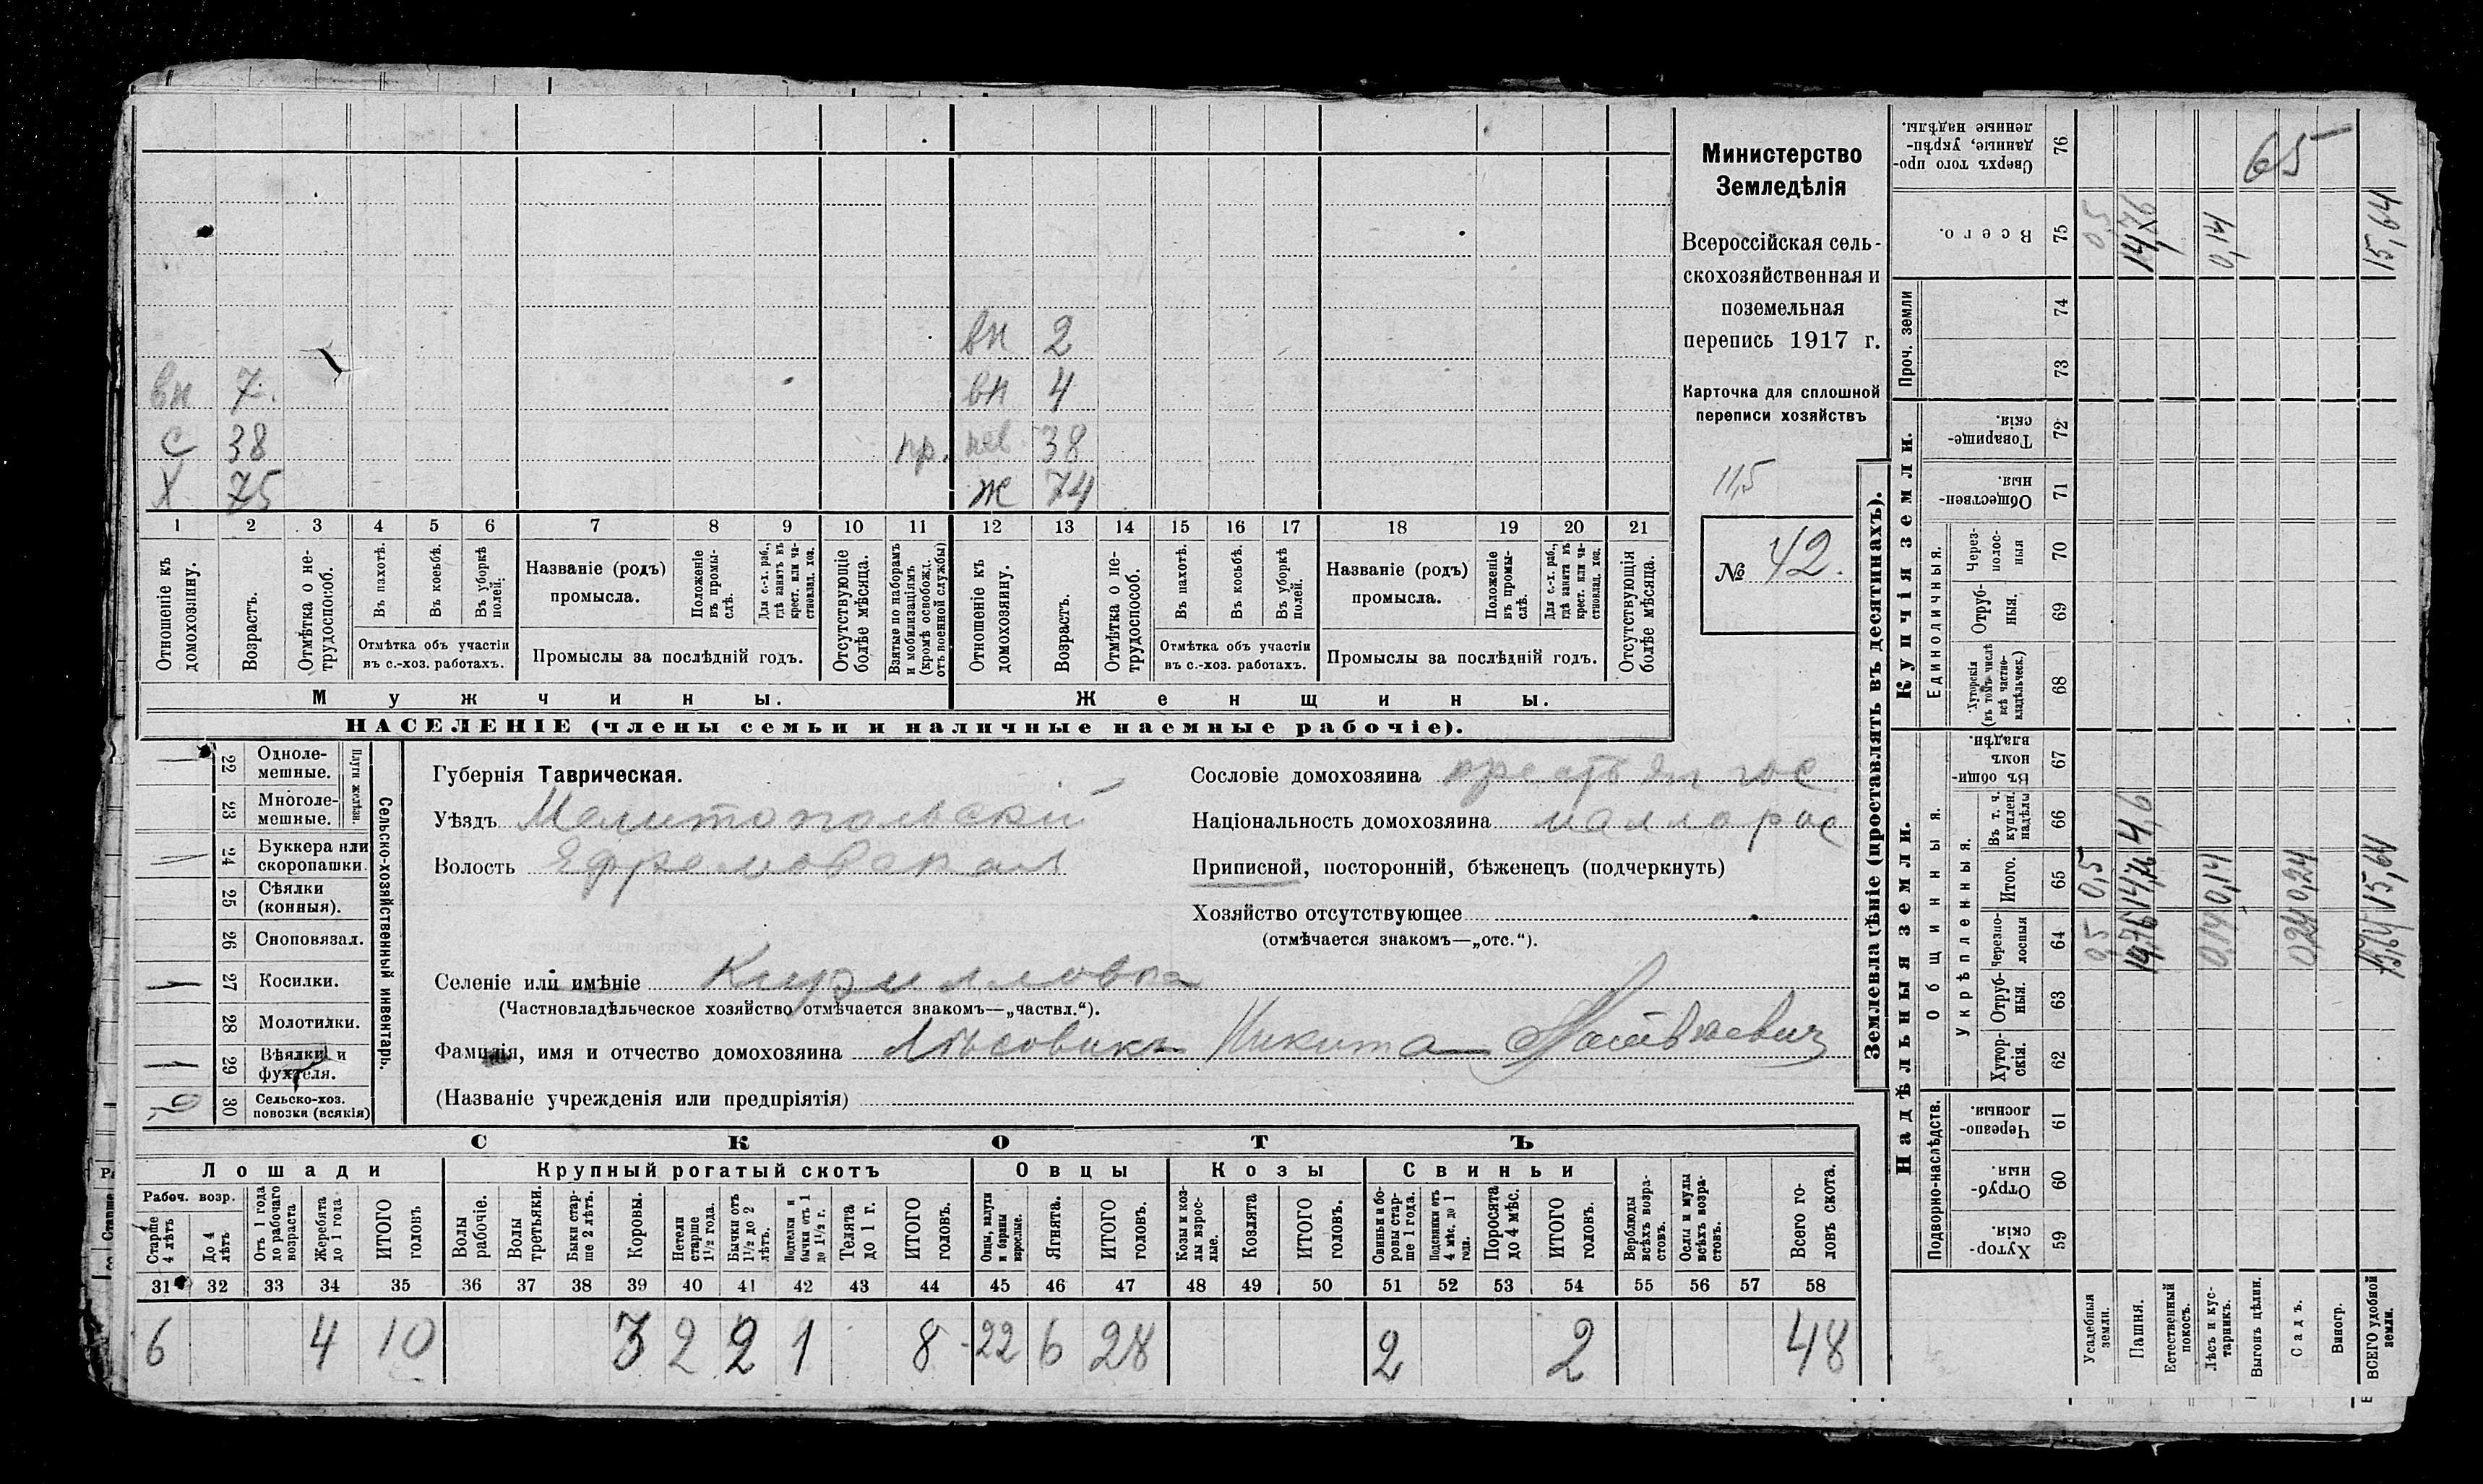 Министерство
Земледѣлія
Всероссійская сель-
скохозяйственная и
поземельная
перепись 1917 г.
Карточка для сплошной
переписи хозяйствъ
11,5
№ 42.
вн 2
вн 7. вн 4
с 38 пр. нев 38
Х 75 ж 74
1 2 3 4 5 6 7 8 9 10 11 12 13 14 15 16 17 18 19 20 21
Отношеніе къ домохозяину.
Возрастъ.
Отмѣтка о не-трудоспособ.
Въ пахотѣ.
Въ косьбѣ.
Въ уборкѣ полей.
Отмѣтка объ участіи
въ с.-хоз. работахъ.
Названіе (родъ)
промысла.
Положеніе въ промы-слѣ.
Для с.-х. раб., гдѣ занятъ въ крест. или ча-стновлад. хоз.
Промыслы за послѣдній годъ.
Отсутствующіе болѣе мѣсяца.
Взятые по наборамъ и мобилизаціямъ (кромѣ освобожд. отъ военной службы)
Отношеніе къ домохозяину.
Возрастъ.
Отмѣтка о не-трудоспособ.
Въ пахотѣ.
Въ косьбѣ.
Въ уборкѣ полей.
Отмѣтка объ участіи
въ с.-хоз. работахъ.
Названіе (родъ)
промысла.
Положеніе въ промы-слѣ.
Для с.-х. раб., гдѣ занята въ крест. или ча-стновлад. хоз.
Промыслы за послѣдній годъ.
Отсутствующія болѣе мѣсяца.
Мужчины. Женщины.
НАСЕЛЕНІЕ (члены семьи и наличные наемные рабочіе).
Сельско-хозяйственный инвентарь.
Плуги желѣзн.
22 Одноле-мешные.
23 Многоле-мешные.
24 Буккера или скоропашки.
25 Сѣялки (конныя).
26 Сноповязал.
27 Косилки.
28 Молотилки.
29 Вѣялки и фухтеля.
30 Сельско-хоз. повозки (всякія)
Губернія Таврическая.
Уѣздъ Мелитопольскій
Волость Ефремовская
Селеніе или имѣніе Кирилловка
(Частновладѣльческое хозяйство отмѣчается знакомъ—„частвл.“).
Фамилія, имя и отчество домохозяина Лѣсовикъ Никита Матвѣевич
(Названіе учрежденія или предпріятія)
Сословіе домохозяина
Національность домохозяина малорос
Приписной, посторонній, бѣженецъ (подчеркнуть)
Хозяйство отсутствующее
(отмѣчается знакомъ—„отс.“).
СКОТЪ
Лошади Крупный рогатый скотъ Овцы Козы Свиньи
Рабоч. возр.
Старше 4 лѣтъ
До 4 лѣтъ
Отъ 1 года до рабочаго возраста
Жеребята до 1 года
ИТОГО головъ
Волы рабочіе.
Волы третьяки.
Быки стар-ше 2 лѣтъ.
Коровы.
Нетели старше 1½ года.
Бычки отъ 1½ до 2 лѣтъ.
Подтелки и бычки отъ 1 до 1½ г.
Телята до 1 г.
ИТОГО головъ.
Овцы, валухи и бараны взрослые.
Ягнята.
ИТОГО головъ.
Козы и коз-лы взрос-лые.
Козлята
ИТОГО головъ.
Свиньи и бо-ровы стар-ше 1 года.
Подсвинки отъ 4 мѣс. до 1 года.
Поросята до 4 мѣс.
ИТОГО головъ.
Верблюды всѣхъ возра-стовъ.
Ослы и мулы всѣхъ возра-стовъ.
Всего го-ловъ скота.
31 32 33 34 35 36 37 38 39 40 41 42 43 44 45 46 47 48 49 50 51 52 53 54 55 56 57 58
6 4 10 3 2 2 1 8 22 6 28 2 2 48
Землевладѣніе (проставлять въ десятинахъ).
Надѣльныя земли. Купчія земли. Проч. земли
Подворно-наслѣдств.
Общинныя.
Укрѣпленныя.
Единоличныя.
Хутор-скія. 59
Отруб-ныя. 60
Черезпо-лосныя. 61
Хутор-скія. 62
Отруб-ныя. 63
Черезпо-лосныя 64
Итого. 65
Въ т. ч. куплен. надѣлы 66
Въ общи-номъ владѣн. 67
Хуторскія (въ томъ числѣ всѣ частно-владѣльческ.) 68
Отруб-ныя. 69
Через-полос-ныя 70
Обществен-ныя. 71
Товарище-скія. 72
73
74
Всего. 75
Сверхъ того про-данные, укрѣп-ленные надѣлы. 76
65
Усадебныя земли. 0,5 0,5 0,5
Пашня. 14,76 14,76 4,6 14,76
Естественный покосъ.
Лѣсъ и кус-тарникъ. 0,14 0,14 0,14
Выгонъ цѣлин.
Садъ. 0,24 0,24
Виногр.
ВСЕГО удобной земли. 15,64 15,64 15,64